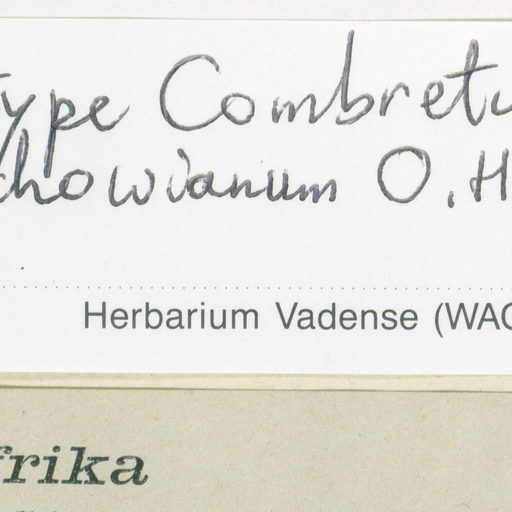 ype Combretu
howianum O.H
Herbarium Vadense (WAG
frika